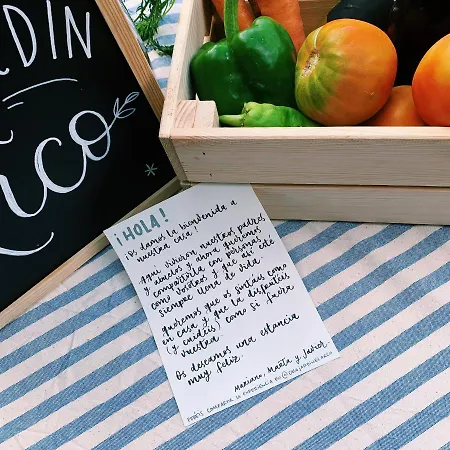 RDÍN
ico
¡HOLA!
¡Os damos la bienvenida a
nuestra casa!
Aquí vivieron nuestros padres
y abuelos y ahora queremos
compartirla con personas
como vosotros y que así esté
siempre llena de vida.
Queremos que os sintáis como
en casa y que la disfrutéis
(y cuidéis) como si fuera
vuestra.
Os deseamos una estancia
muy feliz.
Mariano, Marta y Javier.
PODÉIS COMPARTIR LA EXPERIENCIA EN